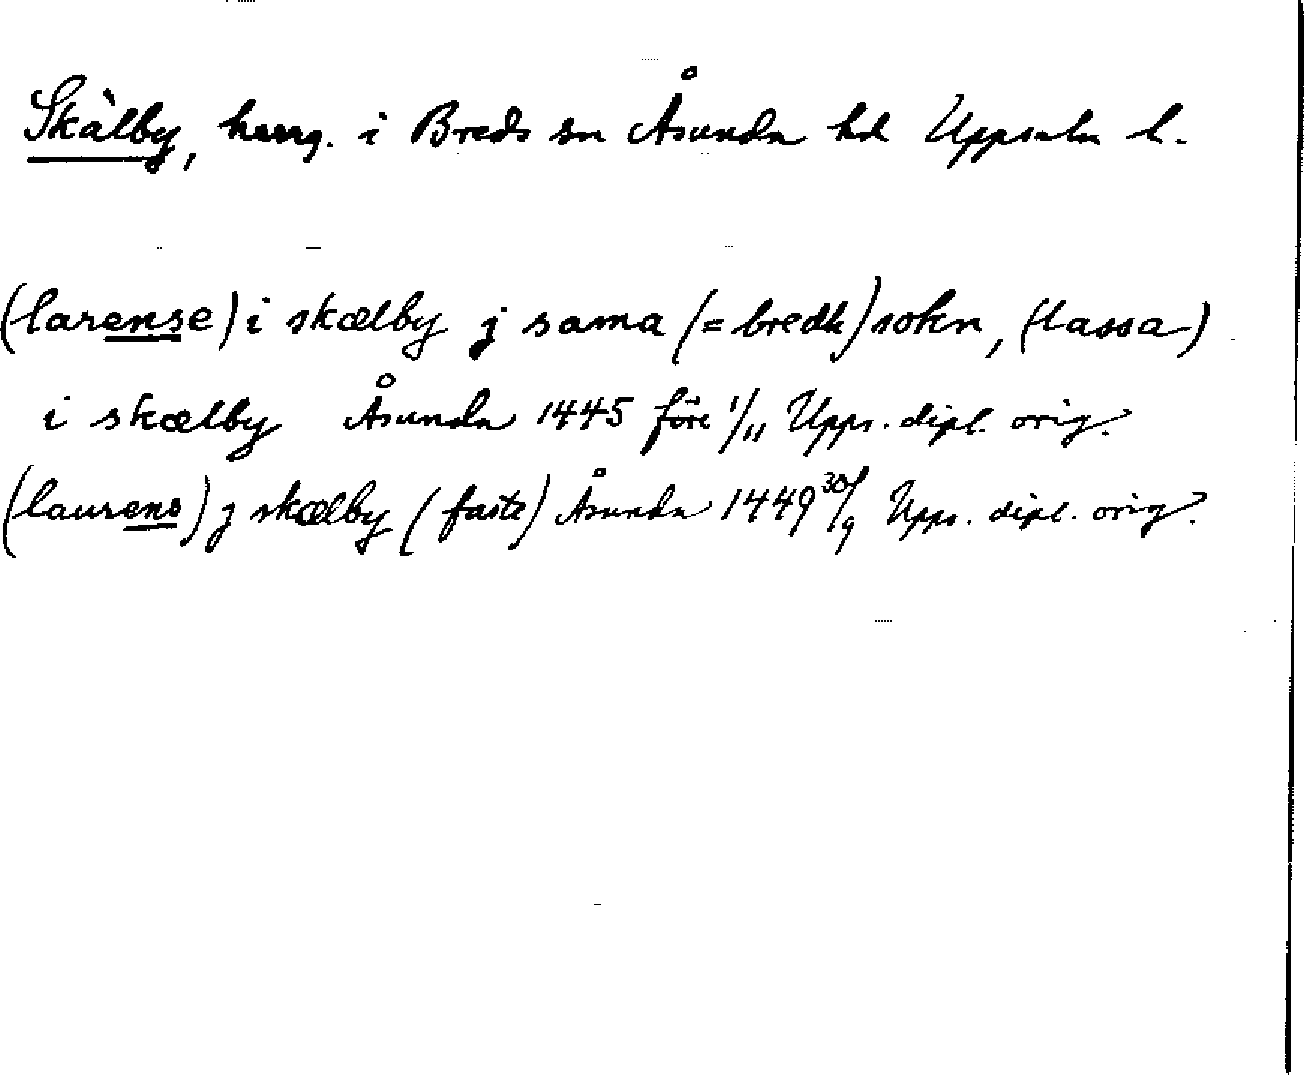 Skälby, herrg. i Breds sn Åsunda hd Uppsala l.
(larense) i skælby j sama (= bredh) sokn, (lassa)
i skælby Åsunda 1445 före 1/11 Upps. dipl. orig.
(laurens) j skælby (faste) Åsunda 1449 30/9 Upps. dipl. orig.